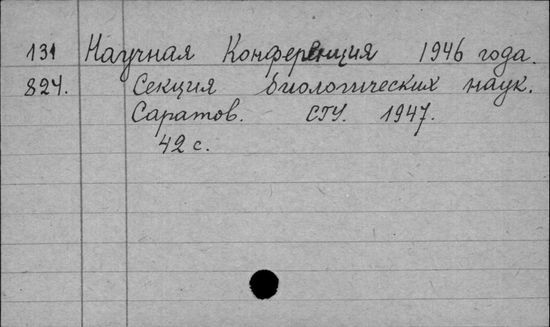 131 Научная Конференция 1946 года.
824. Секция биологических наук.
Саратов. СГУ. 1947.
42 с.